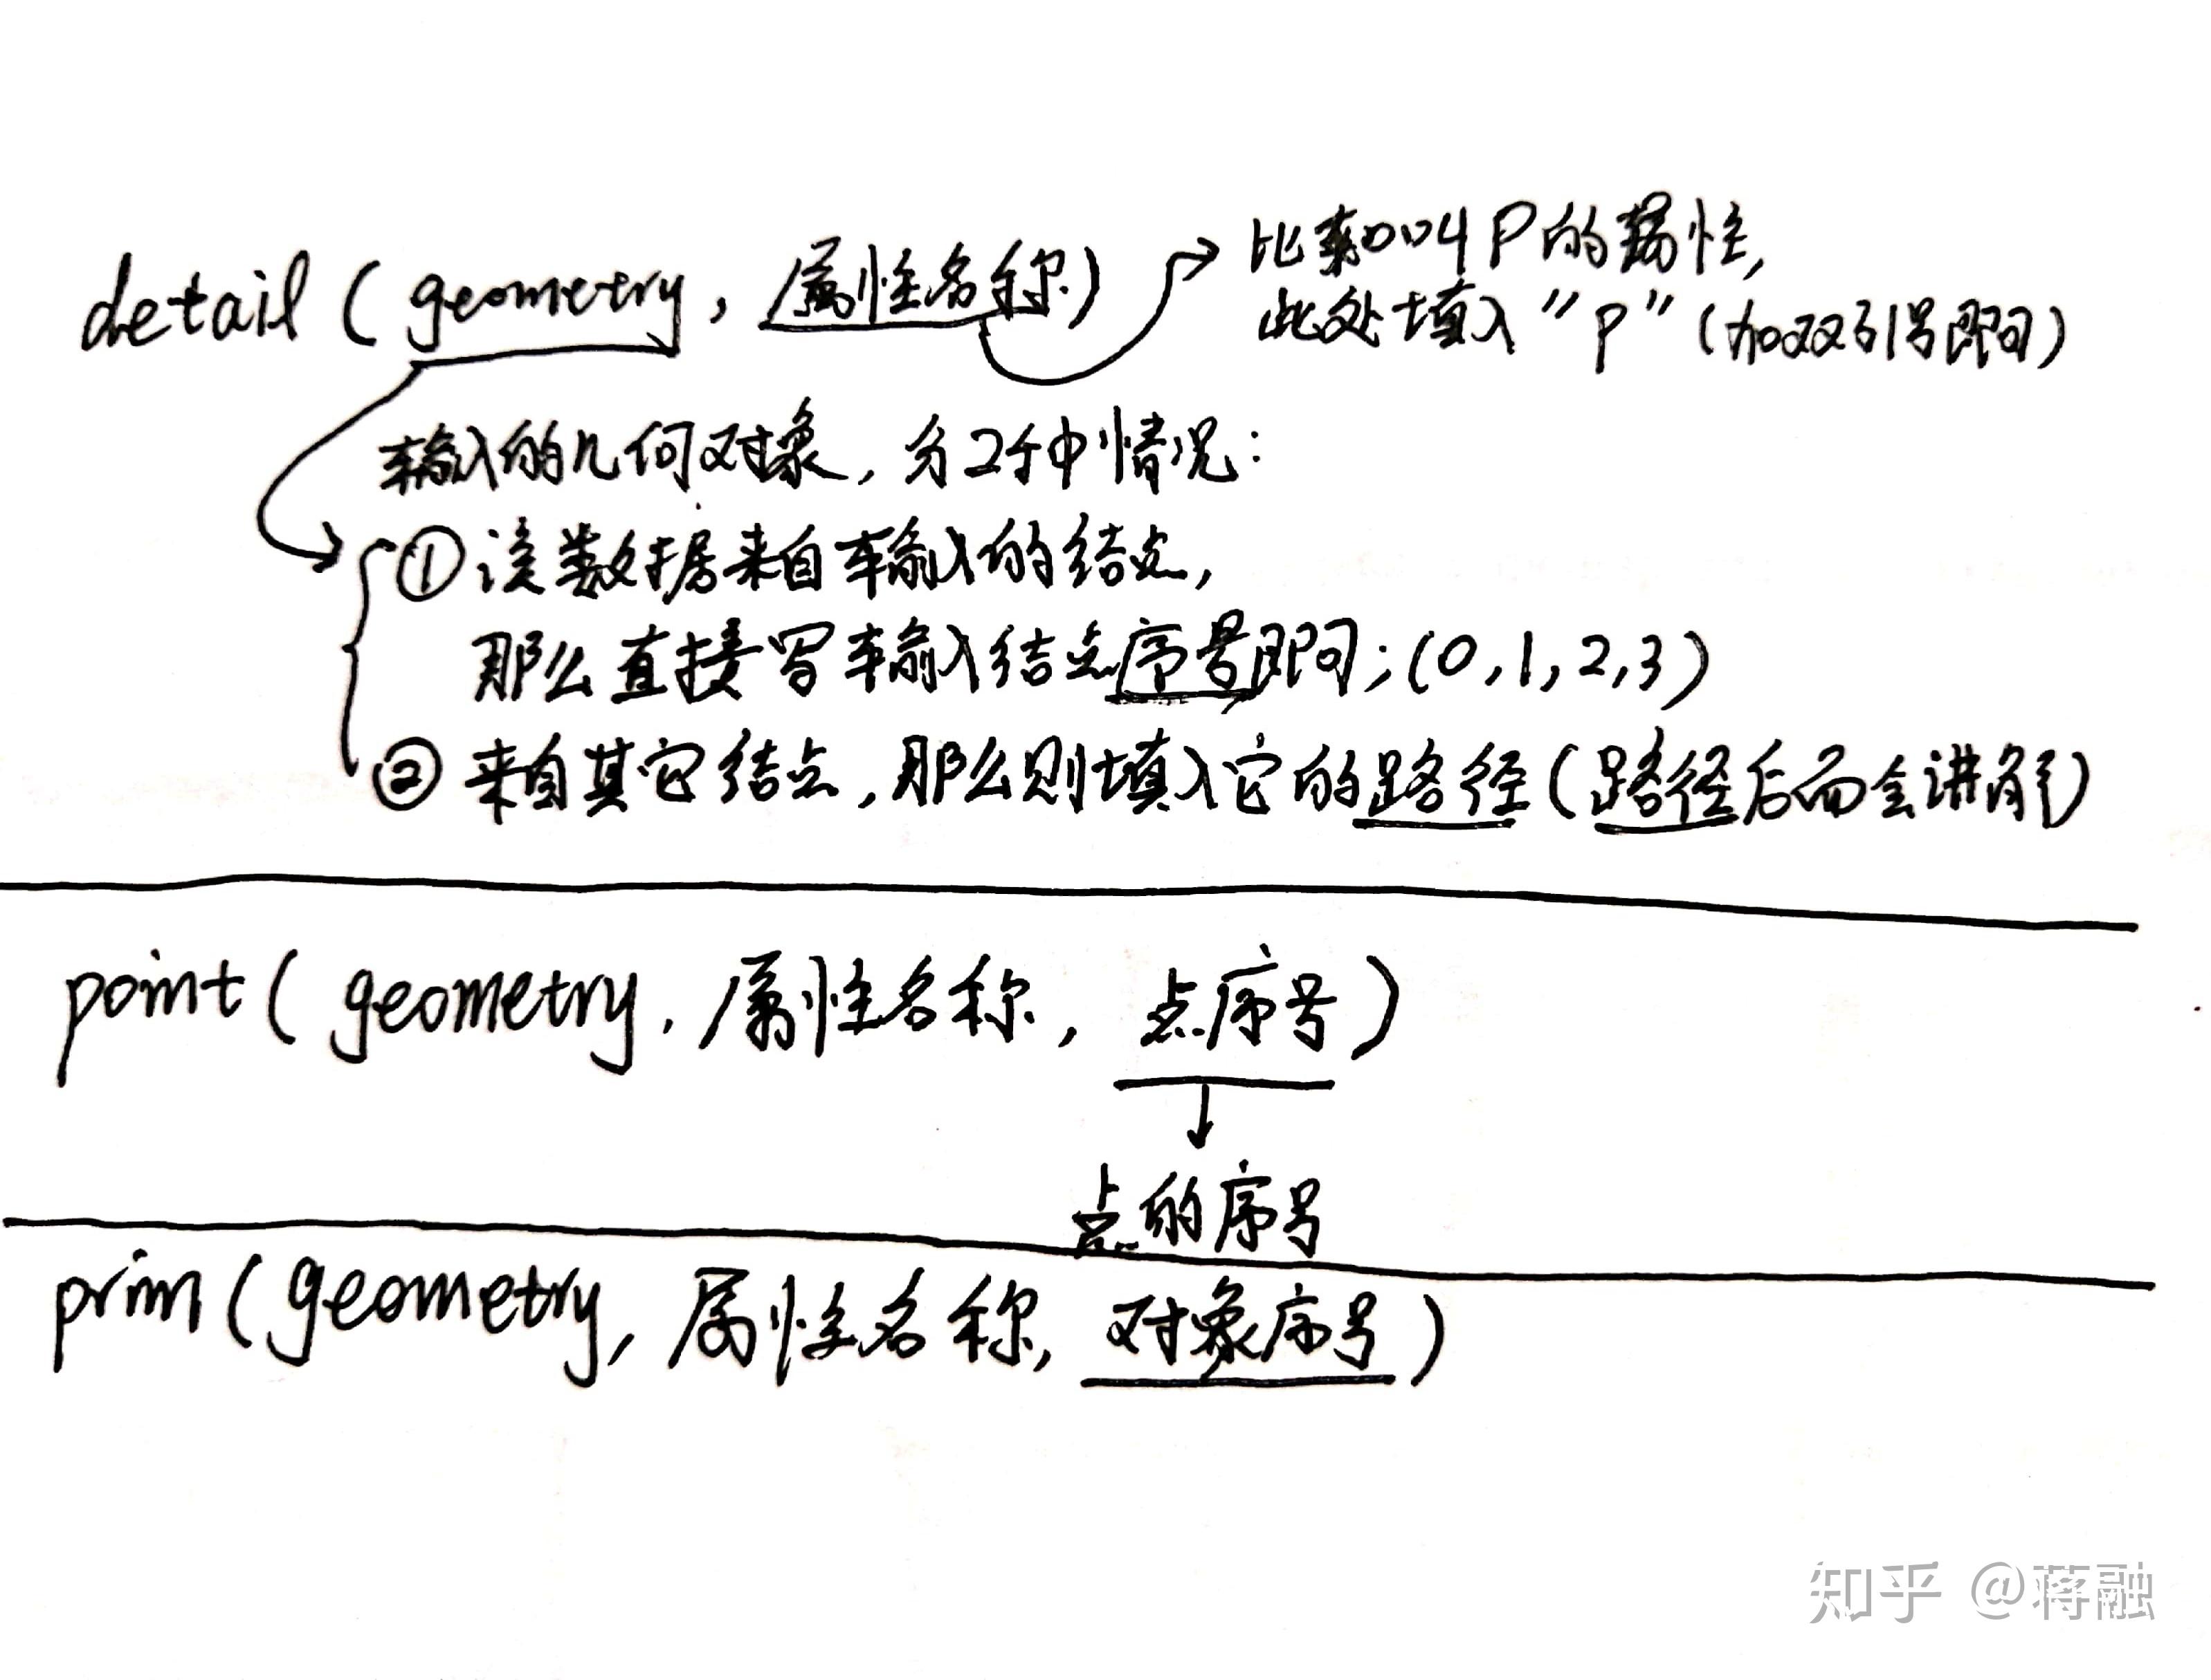 detail(geometry, 属性名称)
比如叫P的属性,
此处填入"P"(加双引号即可)
输入的几何对象, 分2种情况:
① 该数据来自输入的结点,
那么直接写输入结点序号即可; (0,1,2,3)
② 来自其它结点, 那么则填入它的路径(路径后面会讲解)
point(geometry, 属性名称, 点序号)
点的序号
prim(geometry, 属性名称, 对象序号)
知乎 @蒋融